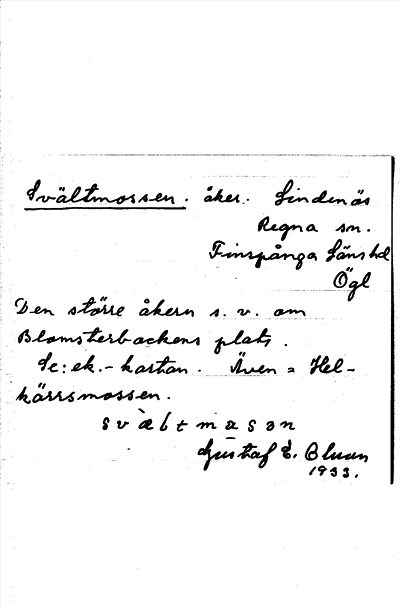 Svältmossen. åker. Lindenäs
Regna sn.
Finspånga Läns hd
Ögl
Den större åkern s. v. om
Blomsterbackens plats.
Se: ek.-kartan. Även = Hel-
kärrsmossen.
svæltmasan
Gustaf E. Bluun
1933.